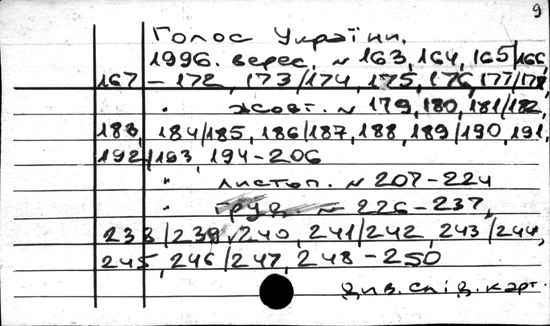 9
Голос України.
1996. верес. № 163, 164, 165/166
167 – 172, 173/174, 175, 176, 177/178,
" жовт. № 179, 180, 181/182,
183, 184/185, 186/187, 188, 189/190, 191,
192/193, 194-206
" листоп. № 207-224
" груд. № 226-237,
238/239, 240, 241/242, 243/244,
245, 246/247, 248-250
див. слід. карт.